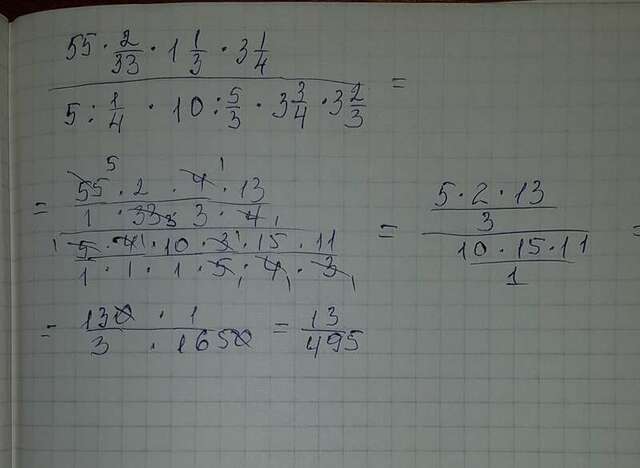 55 · 2/33 · 1 1/3 · 3 1/4
5 : 1/4 · 10 : 5/3 · 3 3/4 · 3 2/3 =
5 1
= 55 · 2 · 4 · 13
1 · 33 3 · 3 · 4 1
1 5 · 4 1 · 10 · 3 1 · 15 · 11
1 · 1 · 1 · 5 1 · 4 1 · 3 1
= 5 · 2 · 13
3
10 · 15 · 11
1
=
= 130 · 1
3 · 1650
= 13/495